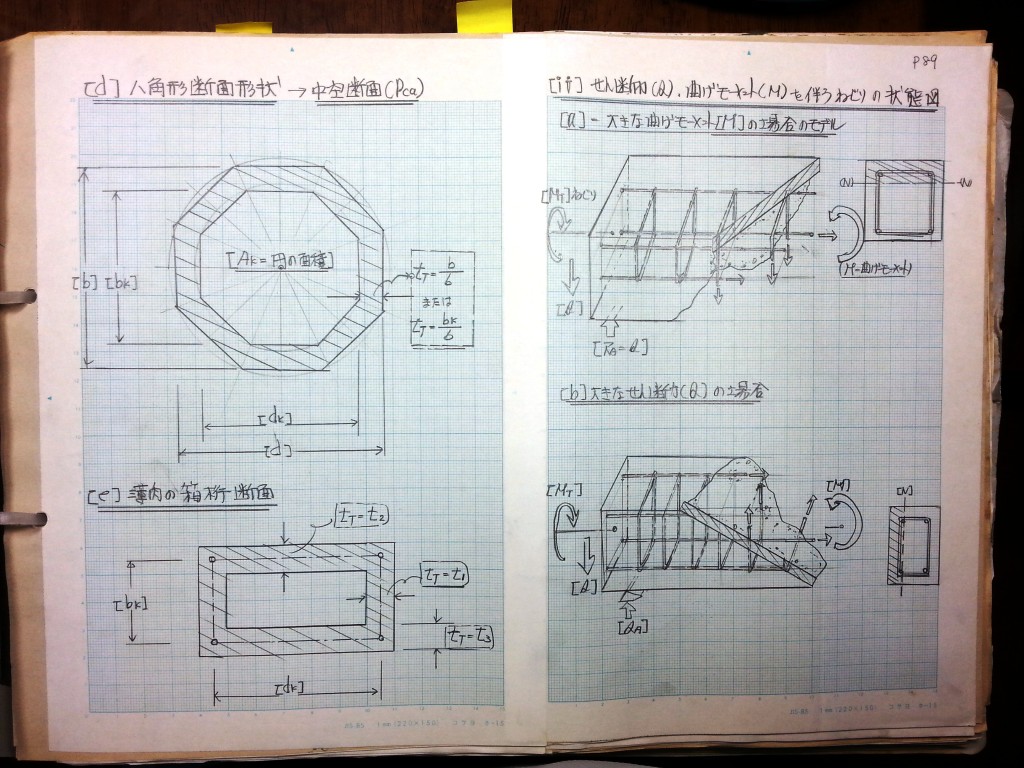 [d] 八角形断面形状 → 中空断面(Pca)
[b] [bk]
[Ak=円の面積]
tT = b/6
または
tT = bk/6
[dk]
[d]
[e] 薄肉の箱桁断面
[tT=t2]
[bk]
[tT=t1]
[tT=t3]
[dk]
P89
[ii] せん断力(Q)、曲げモーメント(M)を伴うねじりの状態図
[a] - 大きな曲げモーメント[M]の場合のモデル
[MT]ねじり
(N) (N)
(M-曲げモーメント)
[Q]
[RA=Q]
[b] 大きなせん断力(Q)の場合
[MT]
[M]
[N]
[Q]
[QA]